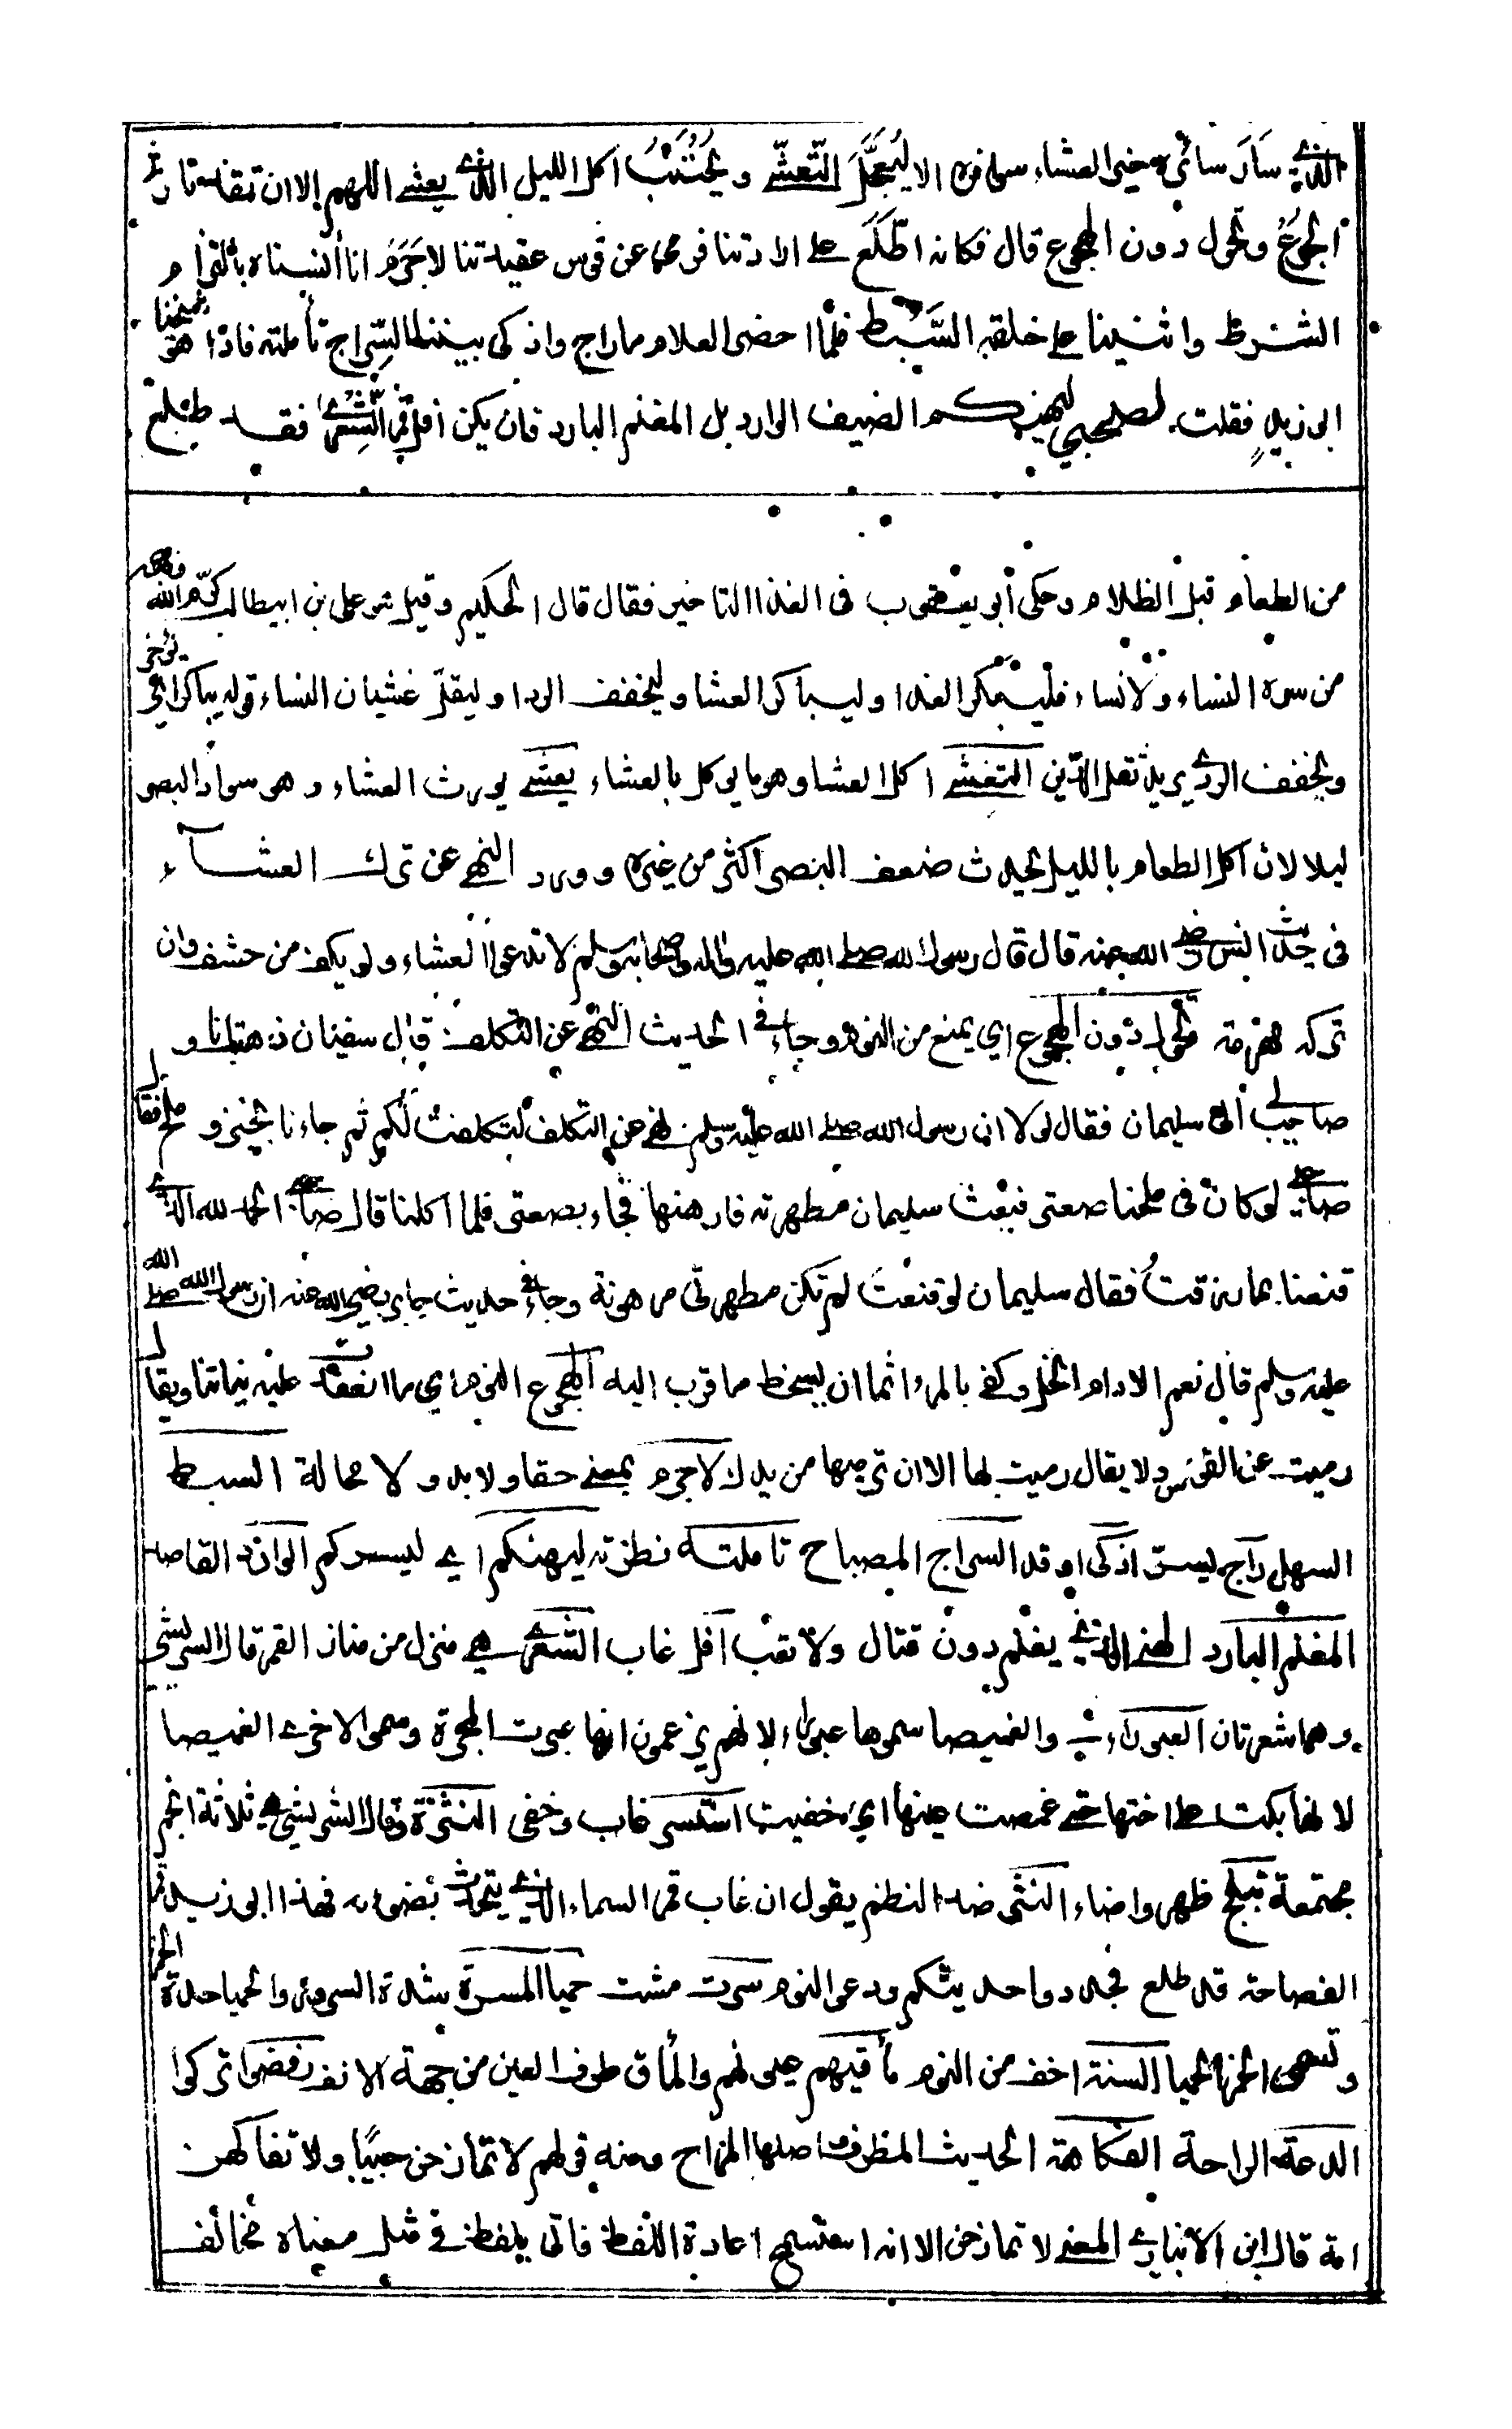 الذي سار سائره خير العشاء سوافره الا ليُعجَّل التعشّي ويُجتنَب اكل الليل الذي يعشي اللهم الا ان تقد نار
الجوعُ وتحول دون الهجوع قال فكانه اطَّلَع على ارادتنا فرمى عن قوس عقيدتنا لا جَرَمَ انا آنسناه بالتزام
الشرط واثنينا على خلقه السَّبْط فلما احضر الغلام ما راج واذكى بيننا السِّراج تأملته فاذا هو
ابو زيدٍ فقلت لصحبي ليهنكم الضيف الوارد بل المغنم البارد فان يكن افل قمر الشِّعرى فقد طلع
من الطعام قبل الظلام وحكى أبو يعقوب في الغذا التاخير فقال قال الحكيم وقيل هو علي بن ابيطالب كرّم الله وجهه
من سره النساء ولا نساء فليبكر الغدا وليباكر العشا وليخفف الردا وليقلّ غشيان النساء قوله يباكر اي يؤخر
ويخفف الردي يريد ثقل الدّين التعشي اكل العشا وهو ما يوكل بالعشاء يعشي يورث العشاء وهو سواد البصر
ليلا لان اكل الطعام بالليل يحدث ضعف البصر اكثر من غيره وورد النهي عن ترك العشاء
في حديث انس رضي الله عنه قال قال رسول الله صلى الله عليه واله واصحابه وسلم لا تدعوا العشاء ولو بكف من حشف فان
تركه مهرمة تحول دون الهجوع اي يمنع من النوم وجاء في الحديث النهي عن التكلف قال سفينان ذهبت انا و
صاحب لي الى سليمان فقال لولا ان رسول الله صلى الله عليه وسلم نهى عن التكلف لتكلفت لكم ثم جاءنا بخبز و ملح فقال
صاحبي لو كان في ملحنا صعتر فبعث سليمان مطهرته فارهنها فجاء بصعتر فلما اكلنا قال صاحبي الحمد لله الذي
قنعنا بما رزقت فقال سليمان لو قنعت لم تكن مطهرتي مرهونة وجاء في حديث جابر رضي الله عنه ان رسول الله صلى الله
عليه وسلم قال نعم الادام الخل وكفى بالمرء اثما ان يسخط ما قرب اليه الهجوع النوم اي ما انعقدت عليه نياتنا ويقال
رميت عن القوس ولا يقال رميت بها الا ان ترميها من يدك لا جرم بمعنى حقا ولا بد ولا محالة السبط
السهل راج تيسر اذكى اوقد السراج المصباح تاملته نظرته ليهنكم اي ليسركم الوارد القاصد
المغنم البارد الهني الذي يغنم دون قتال ولا تعب افل غاب الشعرى هي منزل من منازل القمر قال الشريشي
وهما شعرتان العبور والغميصا سموها عبورا لانهم يزعمون انها عبرت المجرة وسموا الاخرى الغميصا
لانها بكت على اختها حتى غمصت عينها اي خفيت استسر غاب وخفي النثرة قال الشريشي هي ثلاثة انجم
مجتمعة تبلج ظهر واضاء النثر ضد النظم يقول ان غاب قمر السماء الذي يتحدث بضوءه فهذا ابو زيد قمر
الفصاحة قد طلع فجددوا حديثكم ودعوا النوم سرت مشت حميا المسرة شدة السرور والحميا حدة الخمر
وتسمى الخمر الحميا السنة اخف من النوم مأقيهم عيونهم والمأق طرف العين من جهة الانف رفضوا تركوا
الدعة الراحة الفكاهة الحديث المظرف اصلها المزاح ومنه قولهم لا تمازحن صبيًا ولا تفاكهن
امة قال ابن الانباري المعنى لا تمازحن الا انه استسمج اعادة اللفظ فاتى بلفظ في مثل معناه مخالف